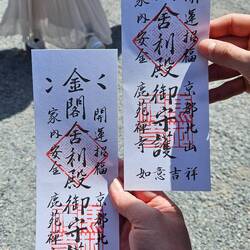 開運招福 京都北山
金閣舎利殿御守護
家内安全 鹿苑禅寺
如意吉祥
開運招福 京都北
金閣舎利殿御守護
家内安全 鹿苑禅寺